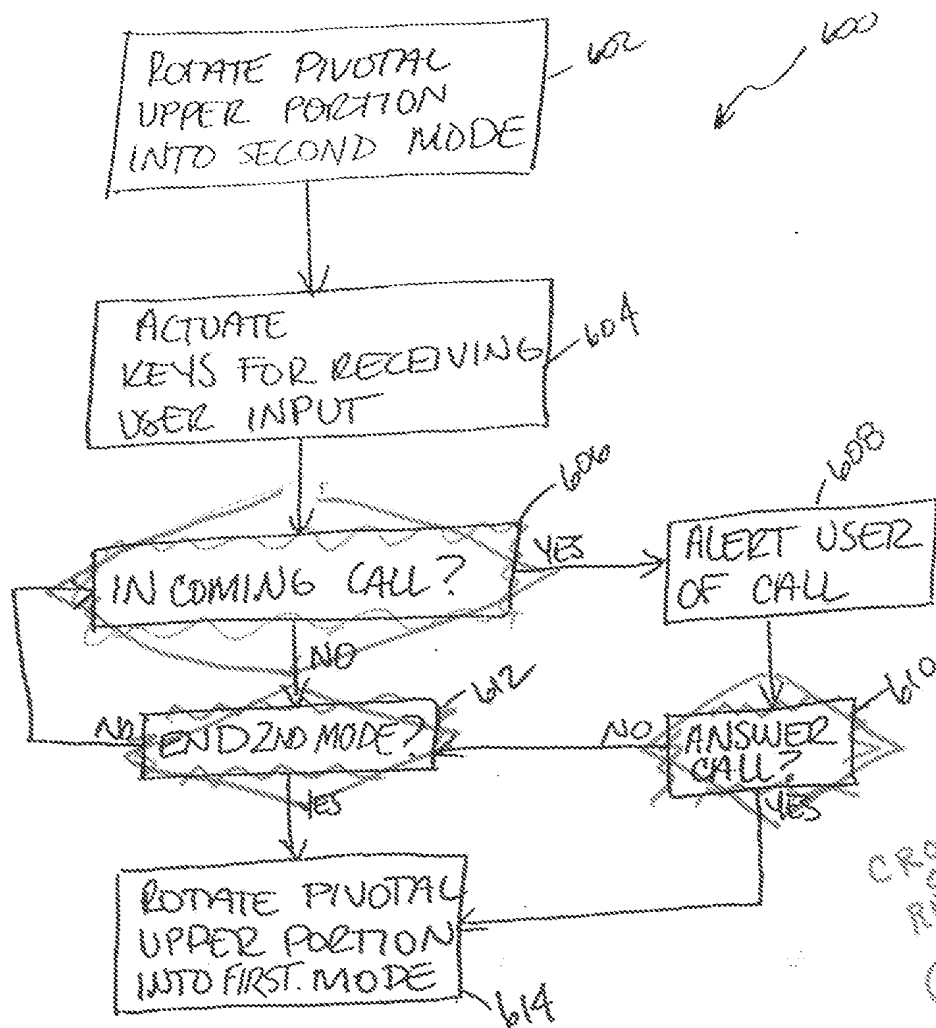 600
ROTATE PIVOTAL
UPPER PORTION
INTO SECOND MODE
602
ACTUATE
KEYS FOR RECEIVING
USER INPUT
604
606
INCOMING CALL?
YES
608
ALERT USER
OF CALL
NO
612
END 2ND MODE?
NO
YES
610
ANSWER
CALL?
NO
YES
ROTATE PIVOTAL
UPPER PORTION
INTO FIRST. MODE
614